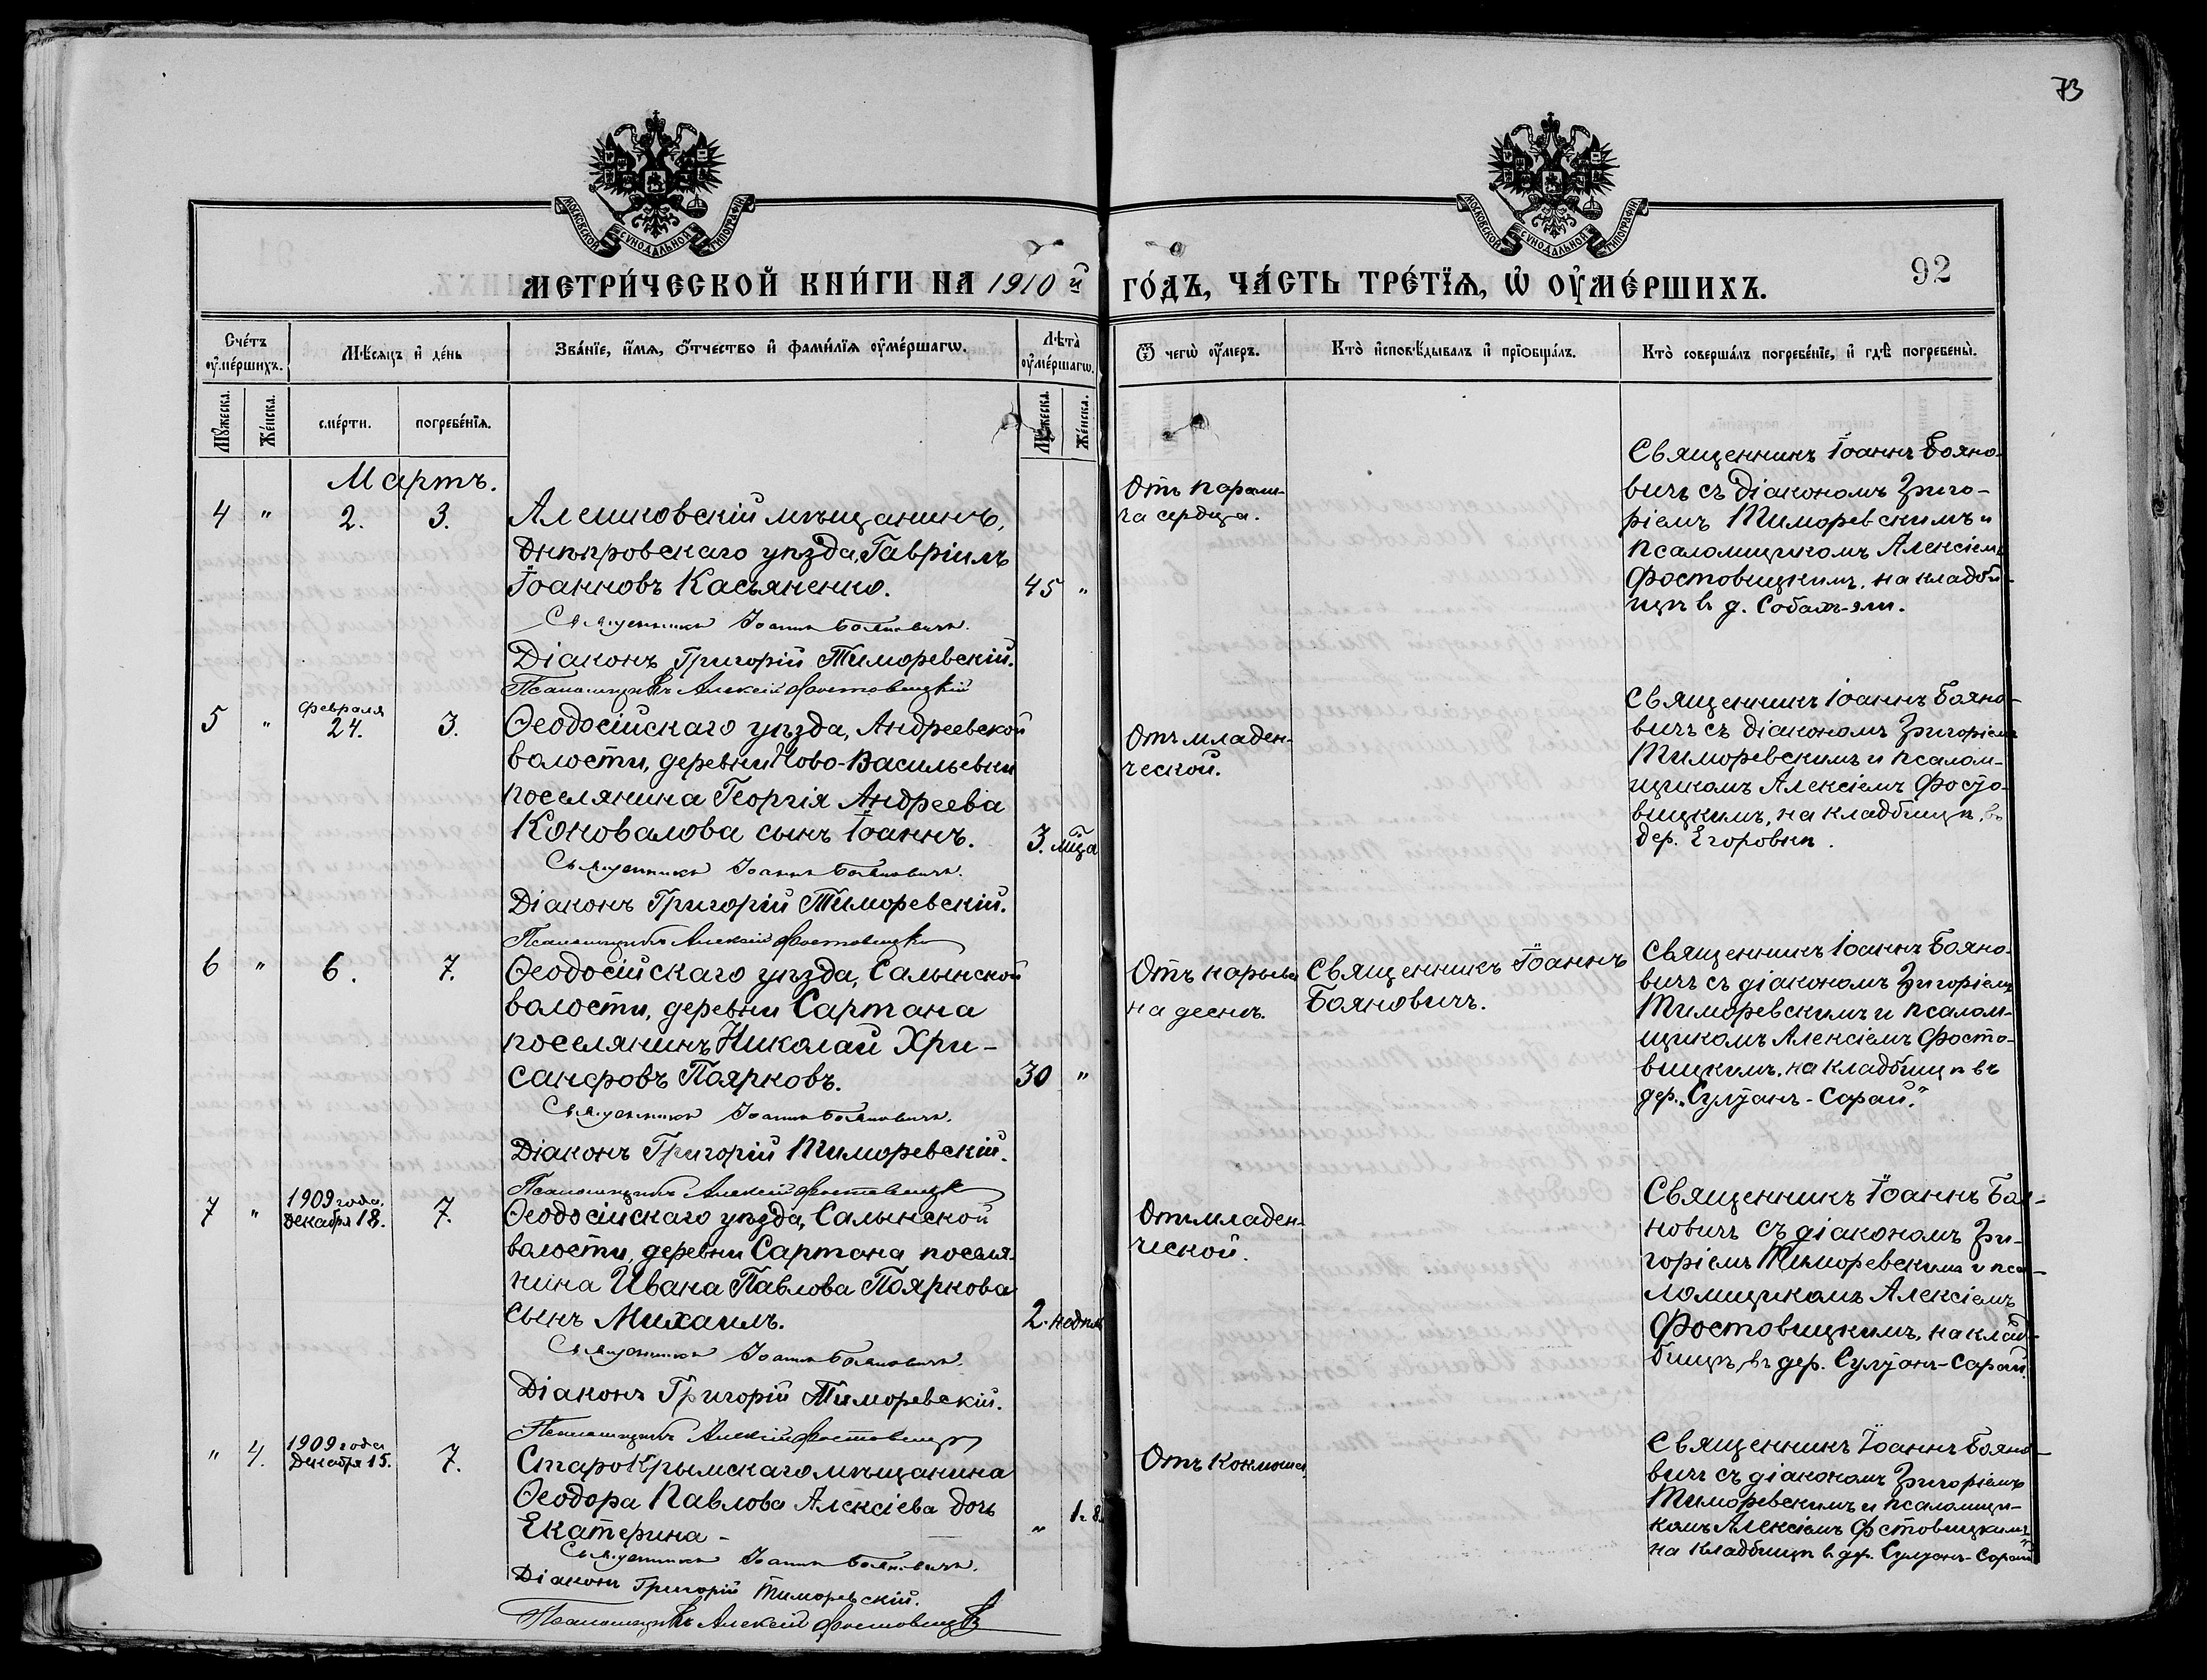 73
МОСКОВСКОЙ СѴНОДАЛЬНОЙ ТИПОГРАФІИ
МОСКОВСКОЙ СѴНОДАЛЬНОЙ ТИПОГРАФІИ
92
МЕТРИ́ЧЕСКОЙ КНИ́ГИ НА 1910 й
ГО́ДЪ, ЧА́СТЬ ТРЕ́ТЇѦ, Ѡ҆ ОУ҆МЕ́РШИХЪ.
Сче́тъ оу҆ме́ршихъ.
Мѣ́сяцъ и҆ де́нь
Зва́нїе, и҆́мя, ѻ҆́тчество и҆ фами́лїя оу҆ме́ршагѡ.
Лѣ́та оу҆ме́ршагѡ.
Ѿ чегѡ̀ оу҆́меръ.
Кто̀ и҆сповѣ́дывалъ и҆ прїѡбща́лъ.
Кто̀ соверша́лъ погребе́нїе, и҆ гдѣ̀ погребены̀.
Мꙋ́жеска.
Же́нска.
сме́рти.
погребе́нїя.
Мꙋ́жеска.
Же́нска.
Мартъ.
4 " 2. 3.
Алешковскій мѣщанинъ,
Днѣпровскаго уѣзда, Гавріилъ
Іоанновъ Касьяненко.
45 "
Священникъ Іоаннъ Бояновичъ.
Діаконъ Григорій Тиморевскій.
Псаломщикъ Алексій Фостовицкій
Отъ парали-
ча сердца.
Священникъ Іоаннъ Бояно-
вичъ съ діакономъ Григо-
ріемъ Тиморевскимъ и
псаломщикомъ Алексіемъ
Фостовицкимъ, на кладби-
щѣ в д. Собахъ-эли.
5 " Февраля 24. 3.
Ѳеодосійскаго уѣзда, Андреевской
волости, деревни Ново-Васильевки
поселянина Георгія Андреева
Коновалова сынъ Іоаннъ.
3. мѣца
Священникъ Іоаннъ Бояновичъ.
Діаконъ Григорій Тиморевскій.
Псаломщикъ Алексій Фостовицкій
Отъ младен-
ческой.
Священникъ Іоаннъ Бояно-
вичъ съ діакономъ Григоріемъ
Тиморевскимъ и псалом-
щикомъ Алексіемъ Фосто-
вицкимъ, на кладбищѣ, въ
дер. Егоровкѣ.
6 " 6. 7.
Ѳеодосійскаго уѣзда, Салынской
волости, деревни Сартана
поселянинъ Николай Хри-
санфовъ Поярковъ.
30 "
Священникъ Іоаннъ Бояновичъ.
Діаконъ Григорій Тиморевскій.
Псаломщикъ Алексій Фостовицкій
Отъ нарыва
на деснѣ.
Священникъ Іоаннъ
Бояновичъ.
Священникъ Іоаннъ Бояно-
вичъ съ діакономъ Григоріемъ
Тиморевскимъ и псалом-
щикомъ Алексіемъ Фосто-
вицкимъ, на кладбищѣ въ
дер. „Султанъ-Сарай."
7 " 1909 года. Декабря 18. 7.
Ѳеодосійскаго уѣзда, Салынской
волости, деревни Сартана поселя-
нина Ивана Павлова Пояркова
сынъ Михаилъ.
2. недѣли
Священникъ Іоаннъ Бояновичъ.
Діаконъ Григорій Тиморевскій.
Псаломщикъ Алексій Фостовицкій
Отъ младен-
ческой.
Священникъ Іоаннъ Боя-
новичъ съ діакономъ Гри-
горіемъ Тиморевскимъ и пса-
ломщикомъ Алексіемъ
Фостовицкимъ, на клад-
бищѣ, въ дер. Султанъ-Сарай.
" 4. 1909 года Декабря 15. 7.
СтароКрымскаго мѣщанина
Ѳеодора Павлова Алексіева дочь
Екатерина -
" 1 г. 8.
Священникъ Іоаннъ Бояновичъ.
Діаконъ Григорій Тиморевскій.
Псаломщикъ Алексій Фостовицкій
Отъ коклюша
Священникъ Іоаннъ Бояно-
вичъ съ діакономъ Григоріемъ
Тиморевскимъ и псаломщи-
комъ Алексіемъ Фстовицкимъ
на кладбищѣ в дер. Султанъ-Сарай